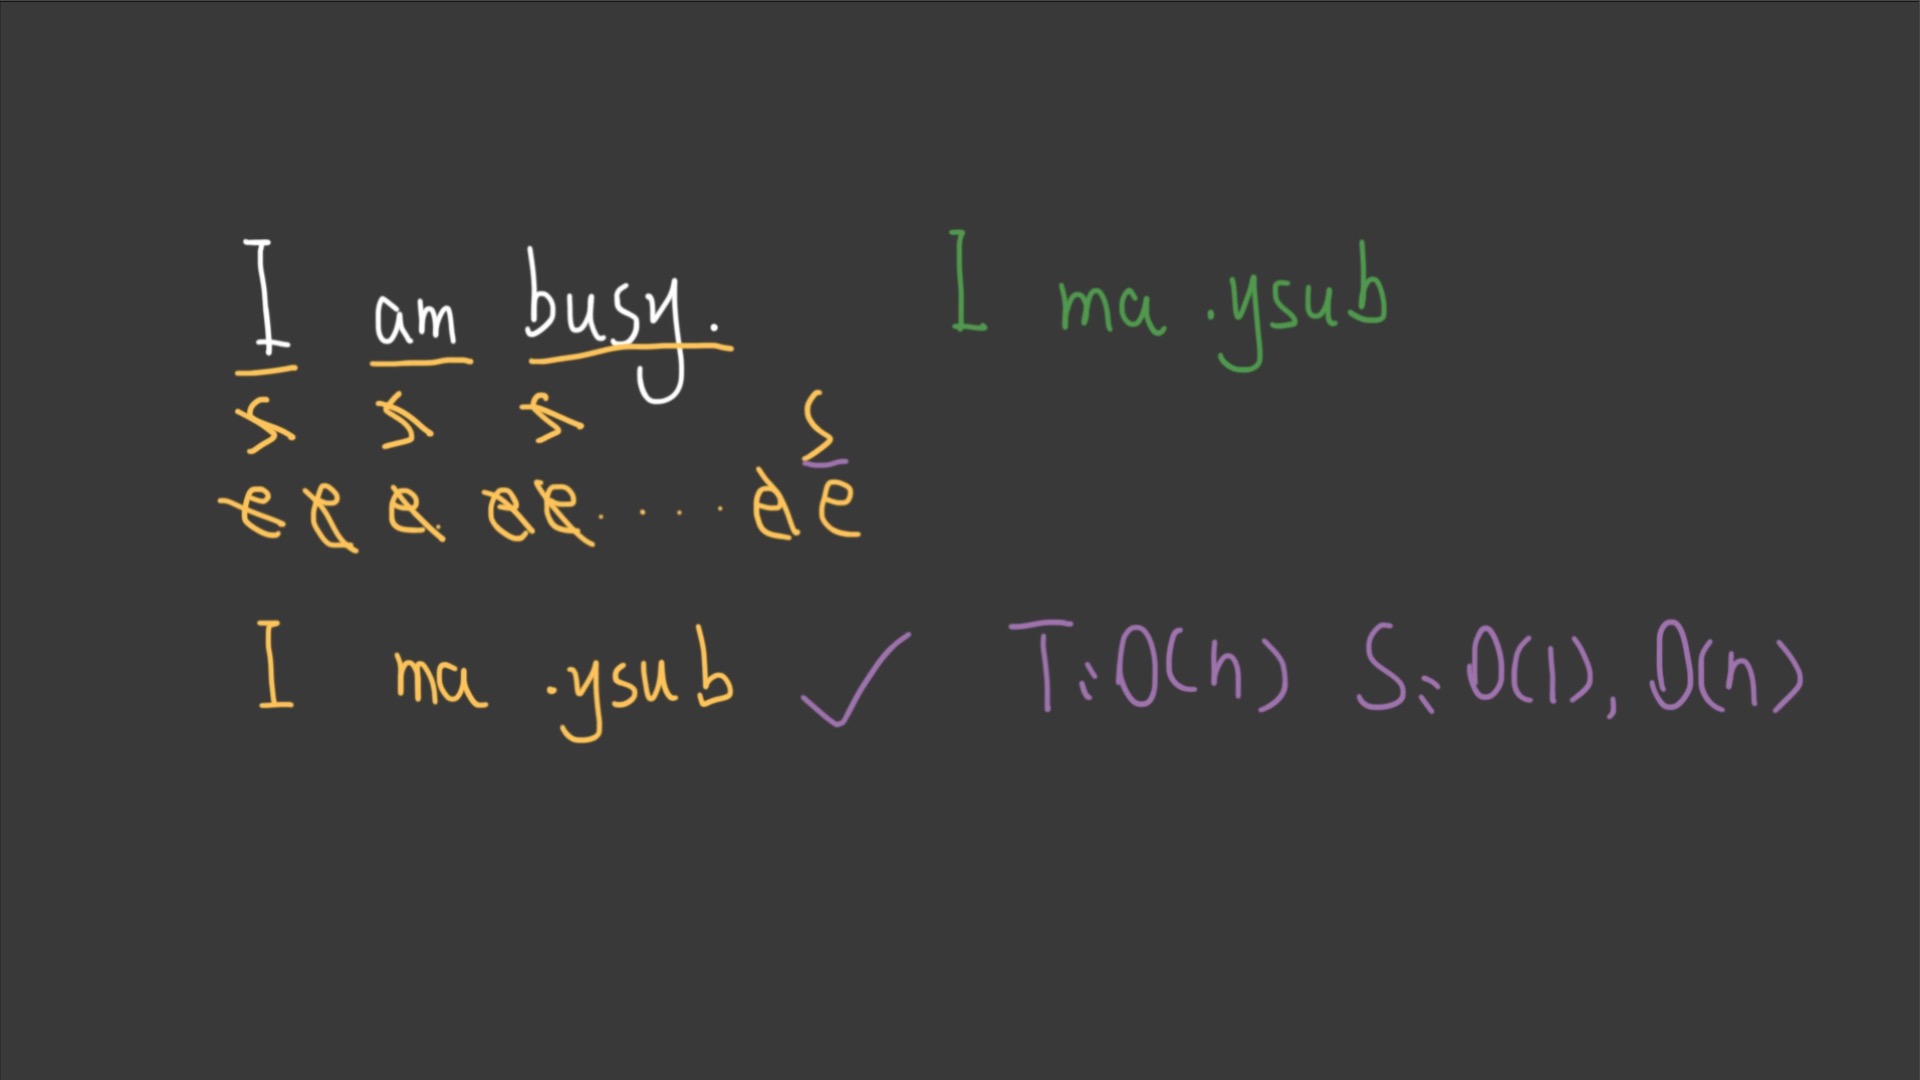 I am busy. I ma .ysub
s s s s
e e e e e . . . . e e
I ma .ysub ✓ T: O(n) S: O(1), O(n)